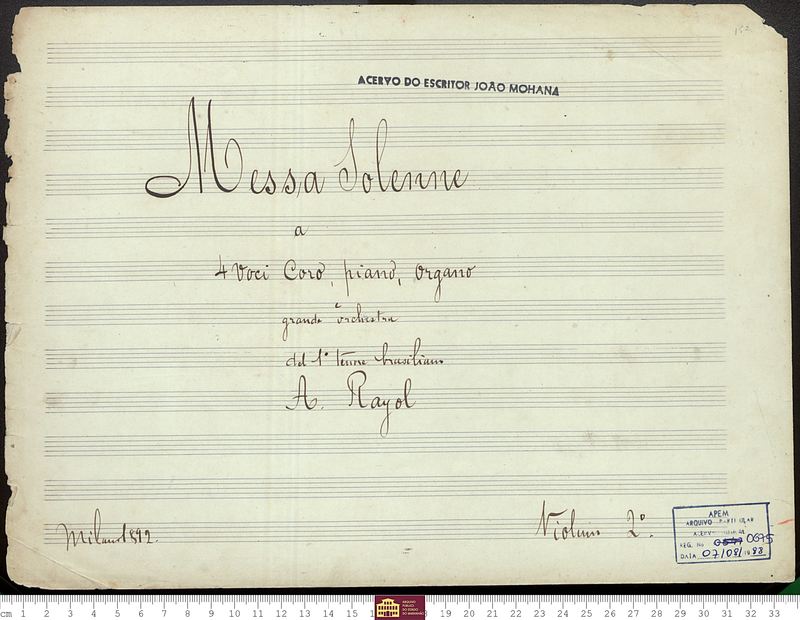 152
ACERVO DO ESCRITOR JOÃO MOHANA
Messa Solenne
a
4 Voci Coro, piano, organo
e
grande orchestra
del 1º tenore brasiliano
A. Rayol
Milano 1892.
Violino 2º.
APEM
ARQUIVO PARTICULAR
REG. No. 0695
DATA 07/08/1988
cm 1 2 3 4 5 6 7 8 9 10 11 12 13 14 15 19 20 21 22 23 24 25 26 27 28 29 30 31 32 33
ARQUIVO
PÚBLICO
DO ESTADO
DO MARANHÃO